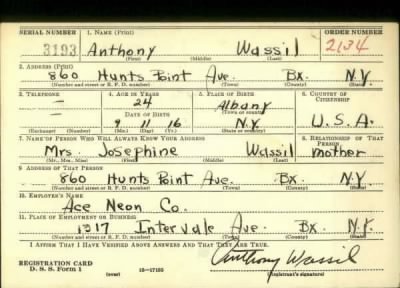 SERIAL NUMBER 1. NAME (Print) ORDER NUMBER
3193 Anthony Wassil 2134
(First) (Middle) (Last)
2. ADDRESS (Print)
860 Hunts Point Ave. Bx. N.Y.
(Number and street or R. F. D. number) (Town) (County) (State)
3. TELEPHONE 4. AGE IN YEARS 5. PLACE OF BIRTH 6. COUNTRY OF CITIZENSHIP
— 24 Albany
DATE OF BIRTH (Town or county)
— 9 11 16 N.Y. U.S.A.
(Exchange) (Number) (Mo.) (Day) (Yr.) (State or country)
7. NAME OF PERSON WHO WILL ALWAYS KNOW YOUR ADDRESS 8. RELATIONSHIP OF THAT PERSON
Mrs. Josephine Wassil mother
(Mr., Mrs., Miss) (First) (Middle) (Last)
9. ADDRESS OF THAT PERSON
860 Hunts Point Ave. Bx. N.Y.
(Number and street or R. F. D. number) (Town) (County) (State)
10. EMPLOYER'S NAME
Ace Neon Co.
11. PLACE OF EMPLOYMENT OR BUSINESS
1317 Intervale Ave. Bx. N.Y.
(Number and street or R. F. D. number) (Town) (County) (State)
I AFFIRM THAT I HAVE VERIFIED ABOVE ANSWERS AND THAT THEY ARE TRUE.
REGISTRATION CARD
D. S. S. Form 1 (over) 16—17105 Anthony Wassil
(Registrant's signature)